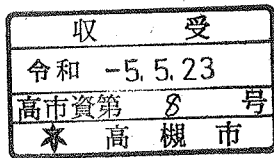 収 受
令和 -5.5.23
高市資第 8 号
高槻市